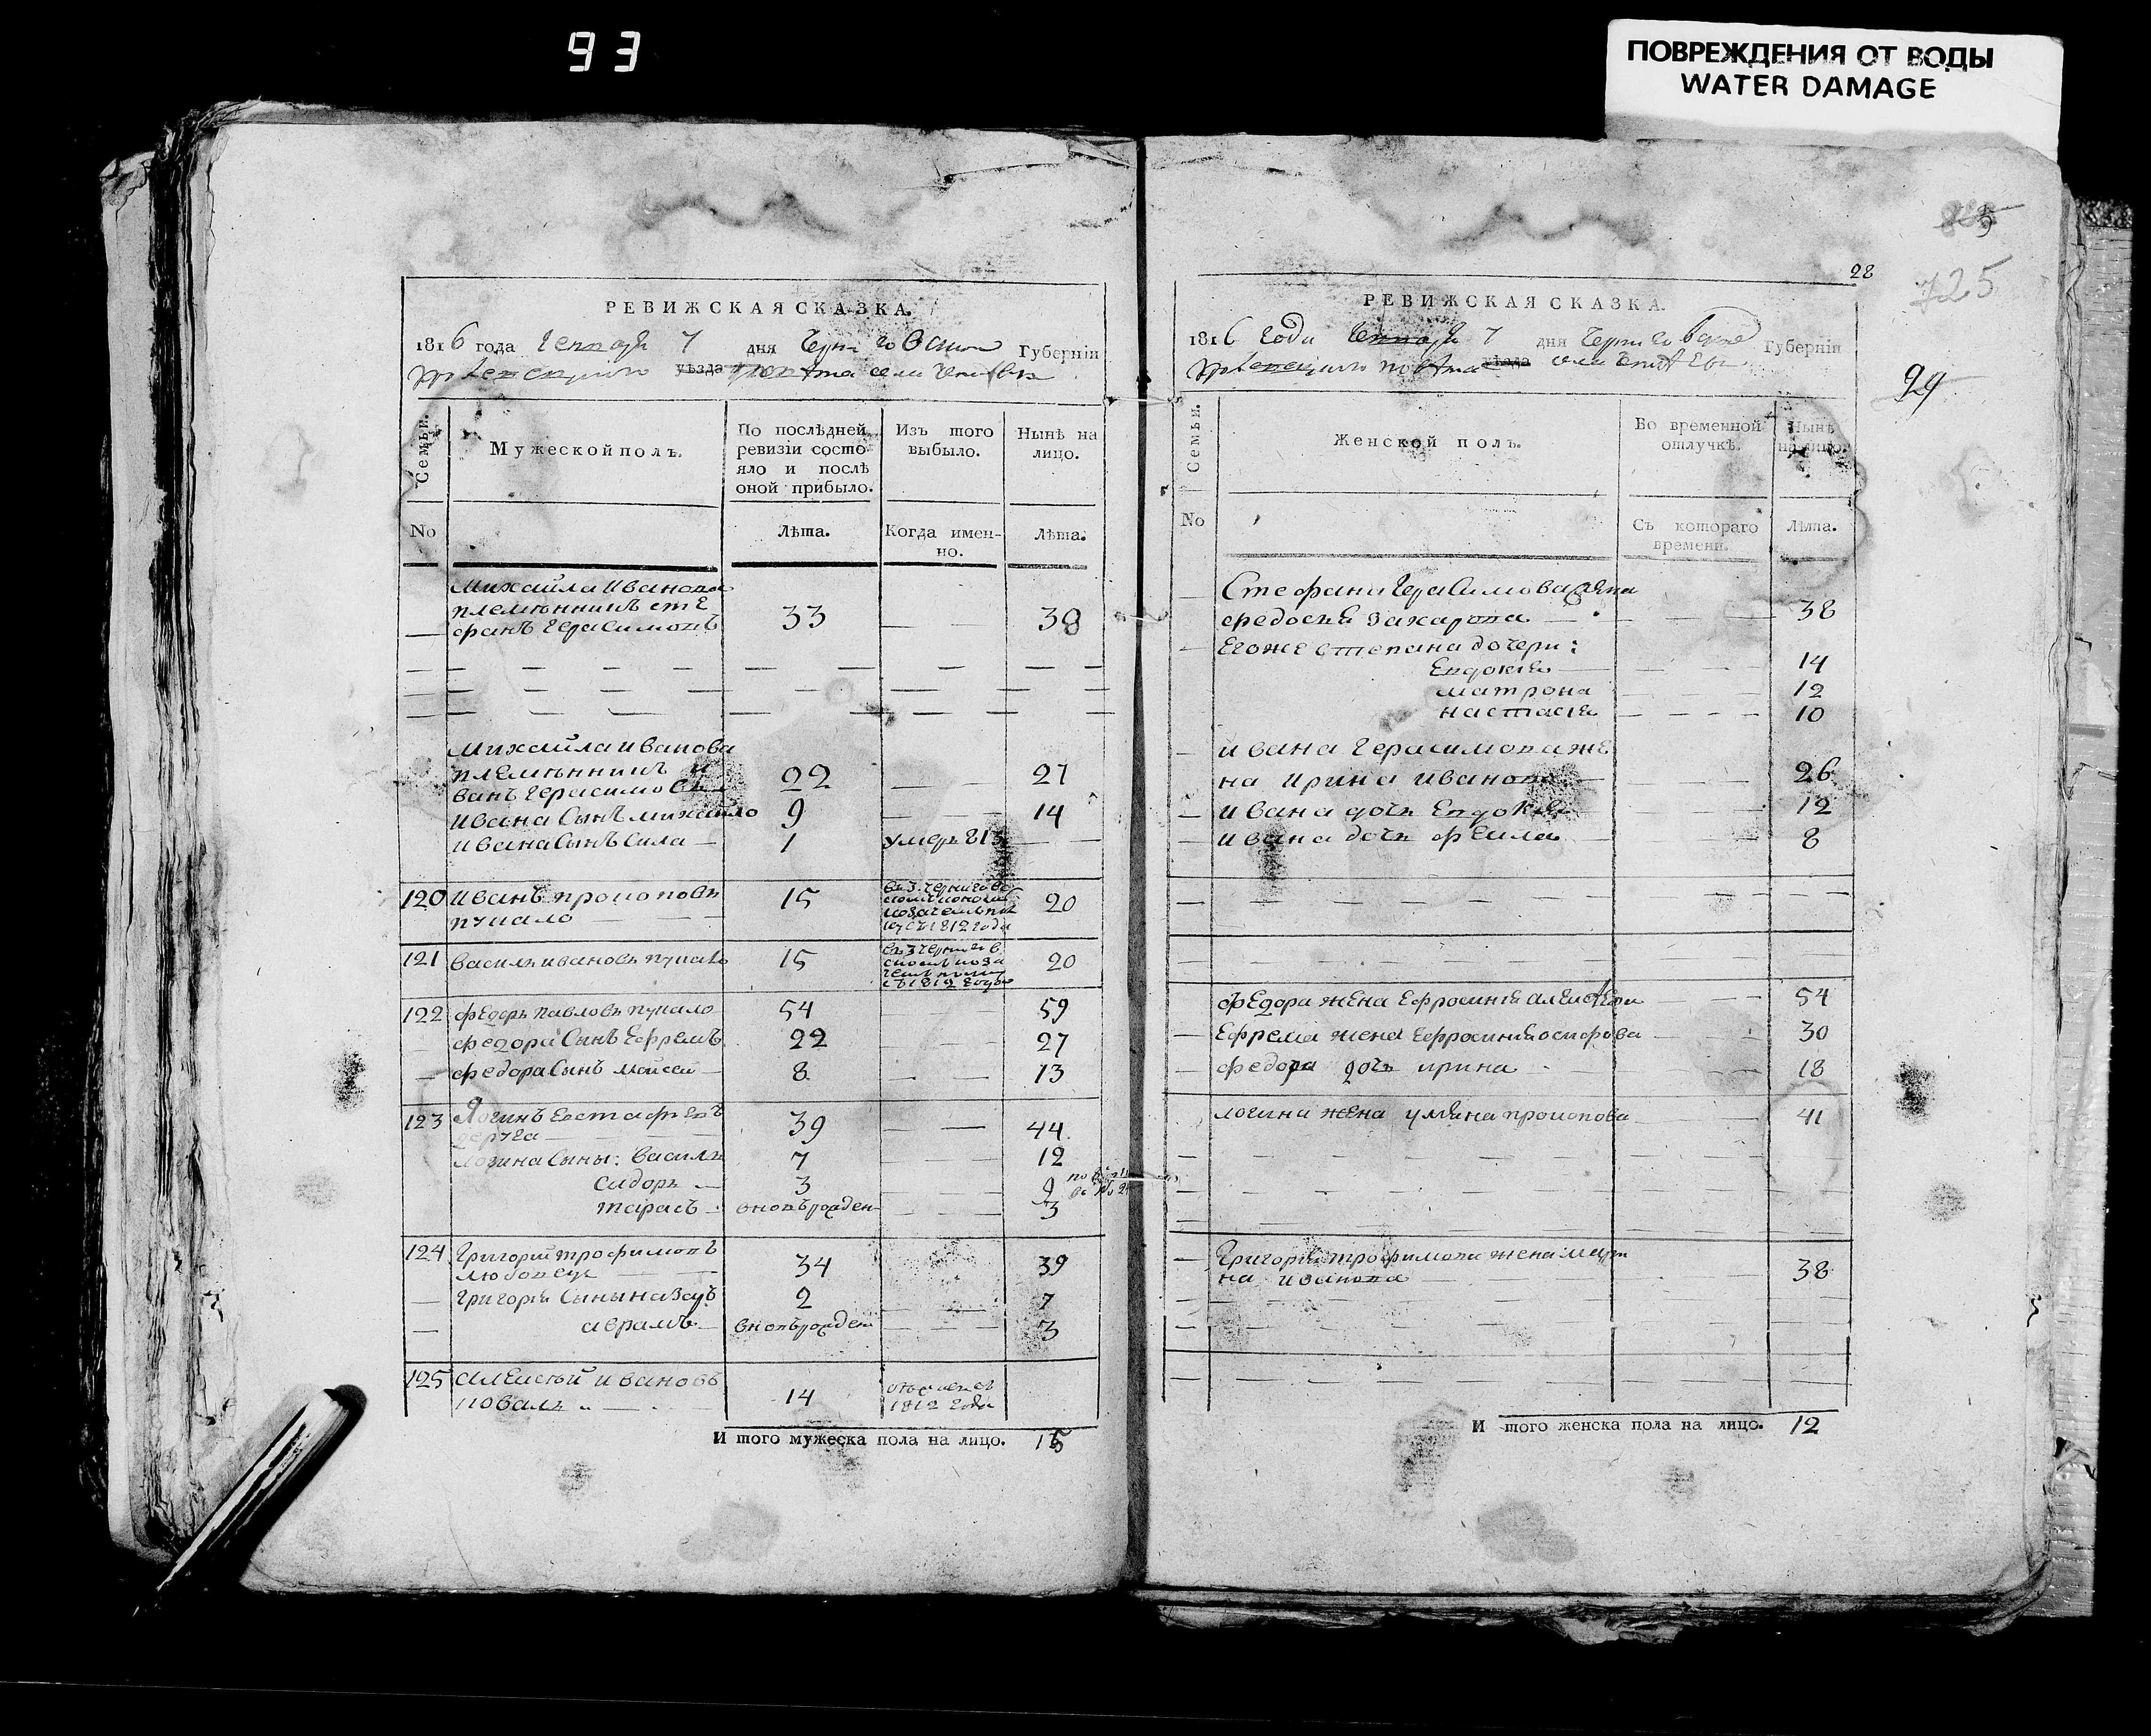 93
ПОВРЕЖДЕНИЯ ОТ ВОДЫ
WATER DAMAGE
725
29
РЕВИЖСКАЯ СКАЗКА.
1816 года 7 дня Губерніи
уѣзда
Семьи.
Мужеской полъ.
По послѣдней ревизіи состояло и послѣ оной прибыло.
Изъ того выбыло.
Нынѣ на лицо.
No
Лѣта.
Когда именно.
Лѣта.
Михайла Иванова
племянникъ Сте
фанъ Герасимовъ 33 — 38
Михайла Иванова
племянникъ И
ванъ Герасимовъ 22 — 27
Ивана Сынъ Михайло 9 — 14
Ивана Сынъ Сила — 1 умеръ 813 —
120 Иванъ Прокоповъ 15 20
1812 года
121 Василь Ивановъ 15 20
122 Федоръ Павловъ 54 — 59
Федора Сынъ Ефремъ 22 — 27
Федора Сынъ Мойсей — 8 — 13
123 Логинъ Евстафѣевъ 39 — 44
Логина Сыны: Василь 7 — 12
Сидоръ — 3 — 9
Тарасъ — вновьрожден — 3
124 Григорій Трофимовъ 34 39
Григорія Сыны Назаръ 2 — 7
Аврамъ — вновьрожден — 3
125 Алексѣй Ивановъ
Коваль 14 1812 года
И того мужеска пола на лицо. 15
28
РЕВИЖСКАЯ СКАЗКА.
1816 года 7 дня Губерніи
повѣта уѣзда села
Семьи.
Женской полъ.
Во временной отлучкѣ.
Нынѣ на лицо.
No
Съ котораго времени.
Лѣта.
Стефана Герасимова жена
Федосія Захарова — 38
Егоже Степана дочери:
Евдокія — 14
Матрона 12
Настасія — 10
Ивана Герасимова же
на Ирина Иванова — 26
Ивана дочь Евдокія — 12
Ивана дочь — 8
Федора жена Ефросинія Алексѣева — 54
Ефрема жена Ефросинія Осифова — 30
Федора дочь Ирина — 18
Логина жена Уляна Прокопова — 41
Григорія Трофимова жена Мари
на Иванова — 38
И того женска пола на лицо. 12